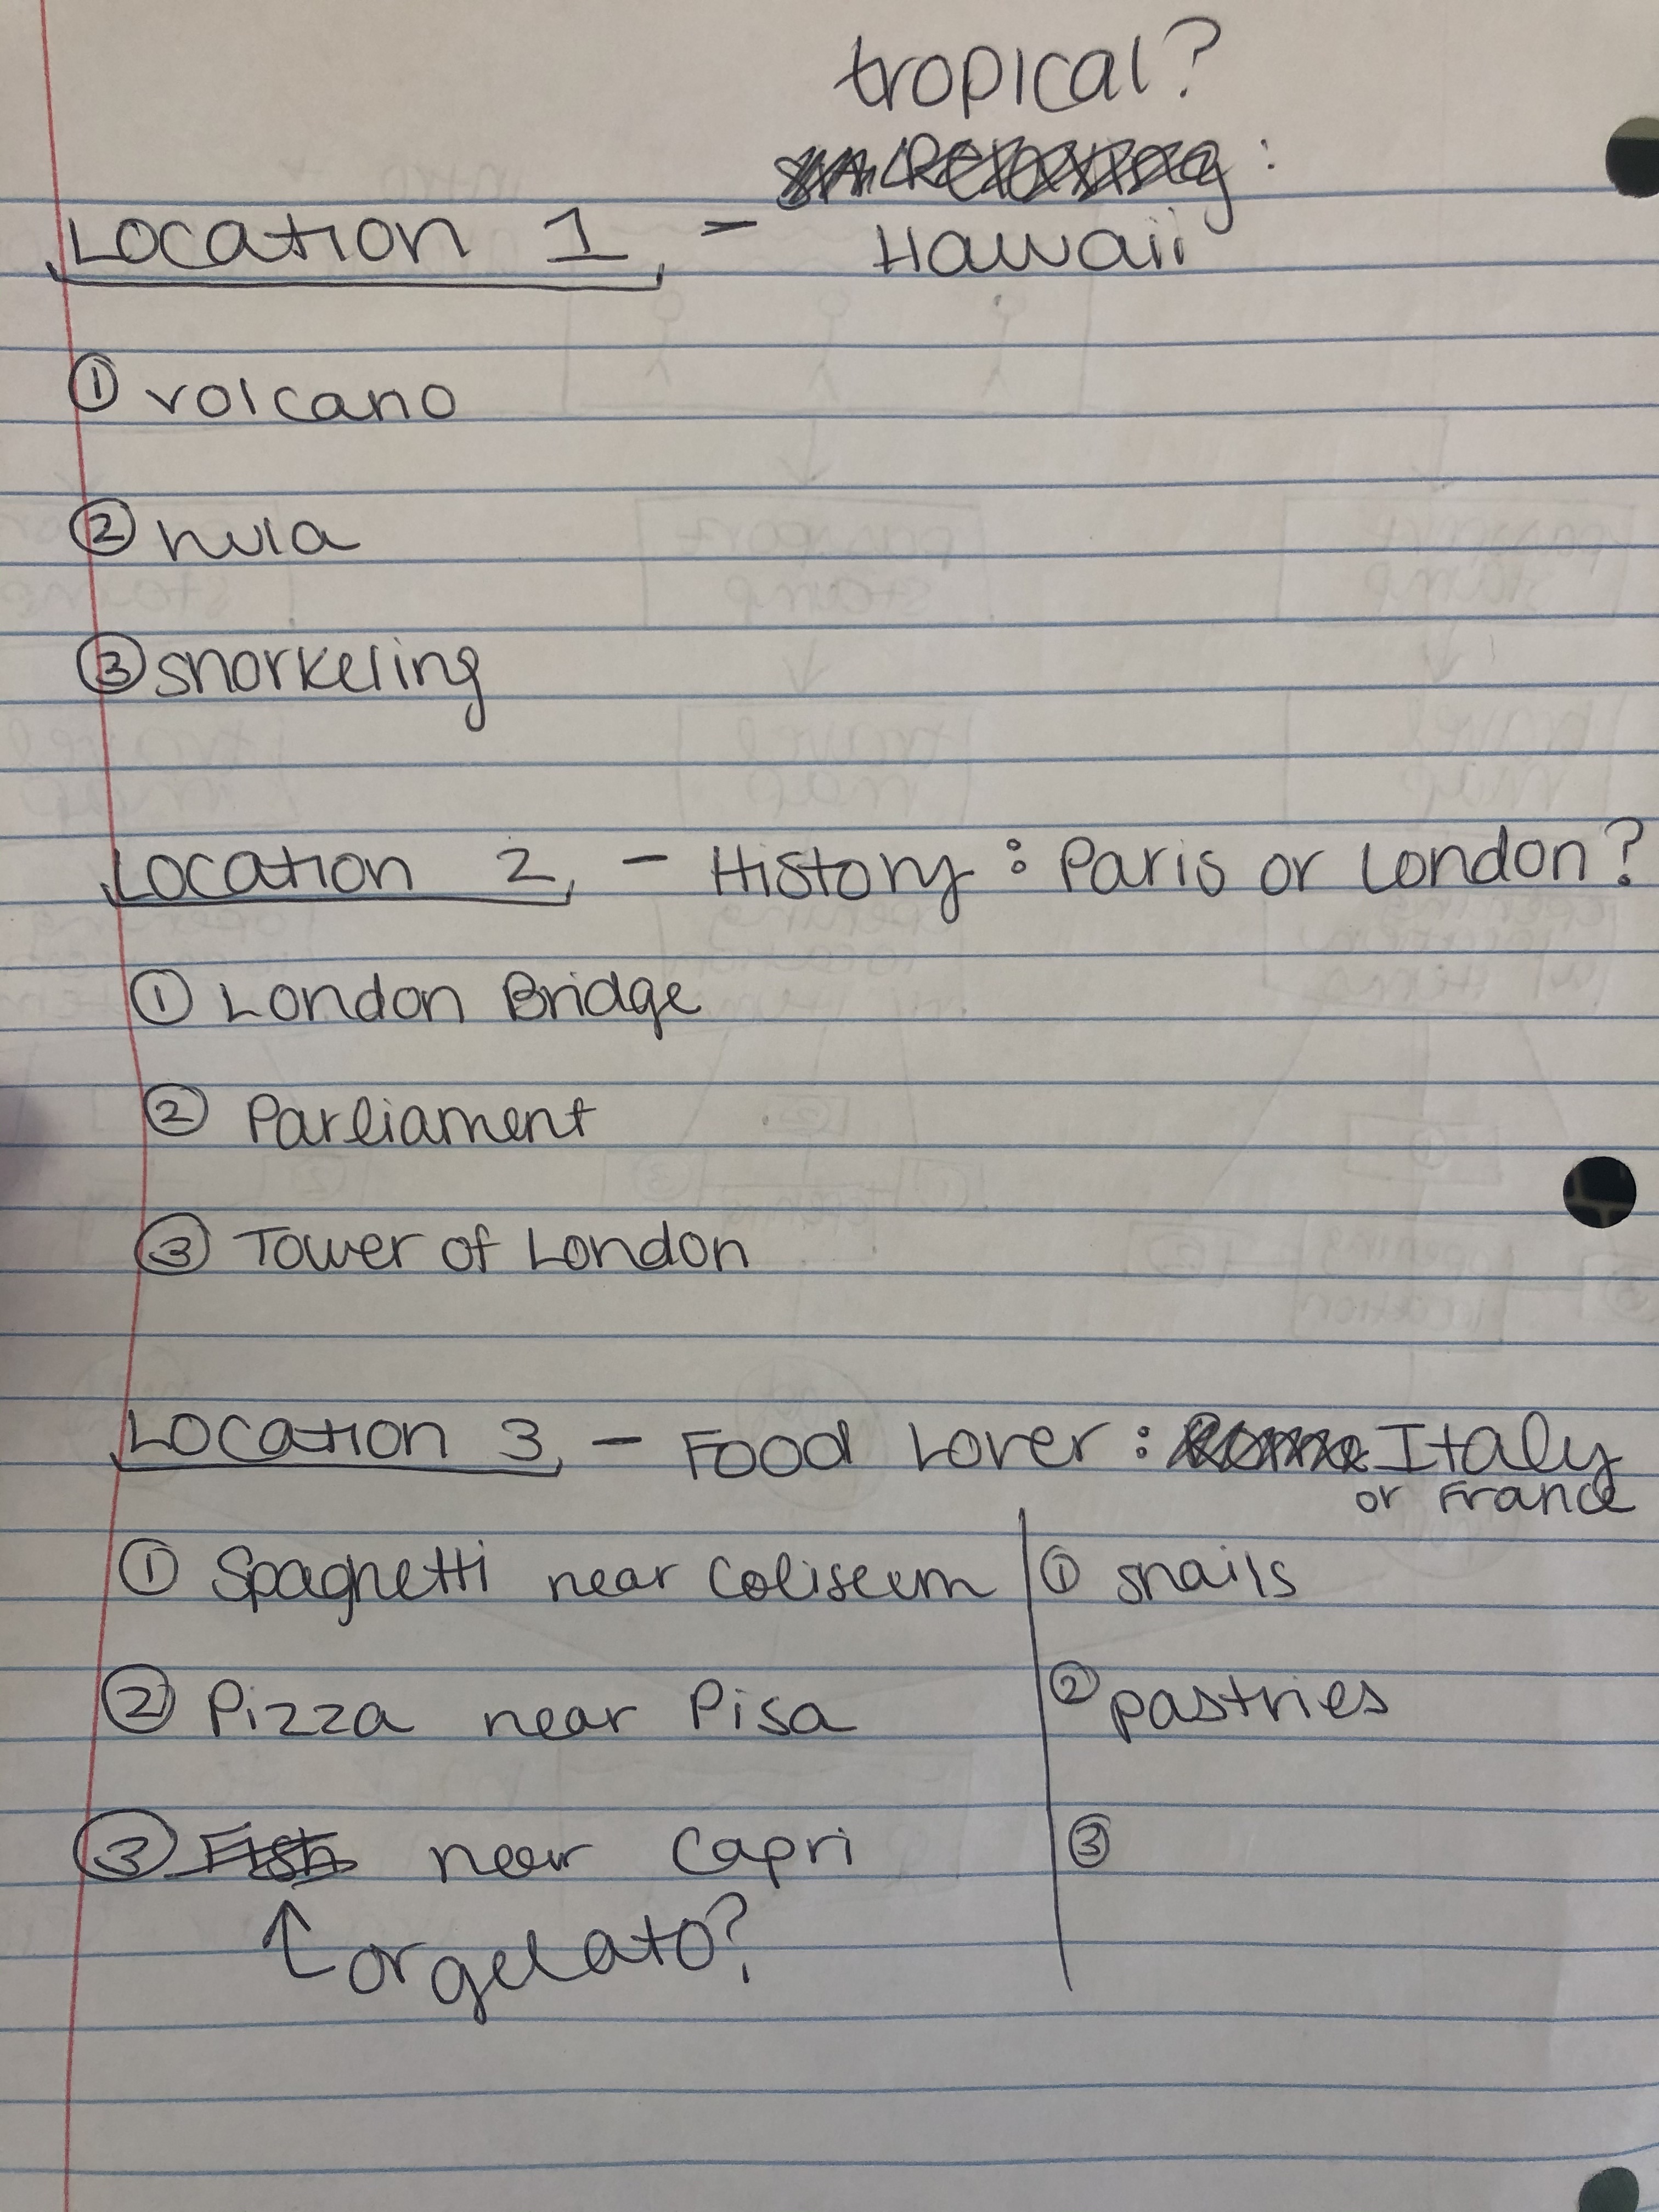 tropical?
Relaxing :
Location 1 - Hawaii
① volcano
② hula
③ snorkeling
Location 2 - History : Paris or London?
① London Bridge
② Parliament
③ Tower of London
Location 3 - Food Lover : Rome Italy
or France
① Spaghetti near Coliseum
② Pizza near Pisa
③ Fish near Capri
↑ or gelato?
① snails
② pastries
③